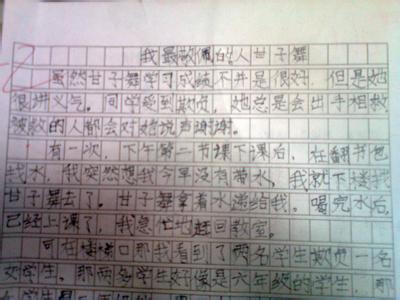 我最敬佩的人甘子舞
虽然甘子舞学习成绩不并是很好，但是她
很讲义气。同学受到欺负，她总是会出手相救
被救的人都会对她说声谢谢。
有一次，下午第二节课下课后，在翻书包
找水，我突然想我今早没有带水，我就下楼找
甘子舞去了。甘子舞拿着水递给我。喝完水后，
已经上课了，我急忙地赶回教室。
可在口那我看到了两名学生欺负一名
女学生。那两名学生好像是六年级的学生，那